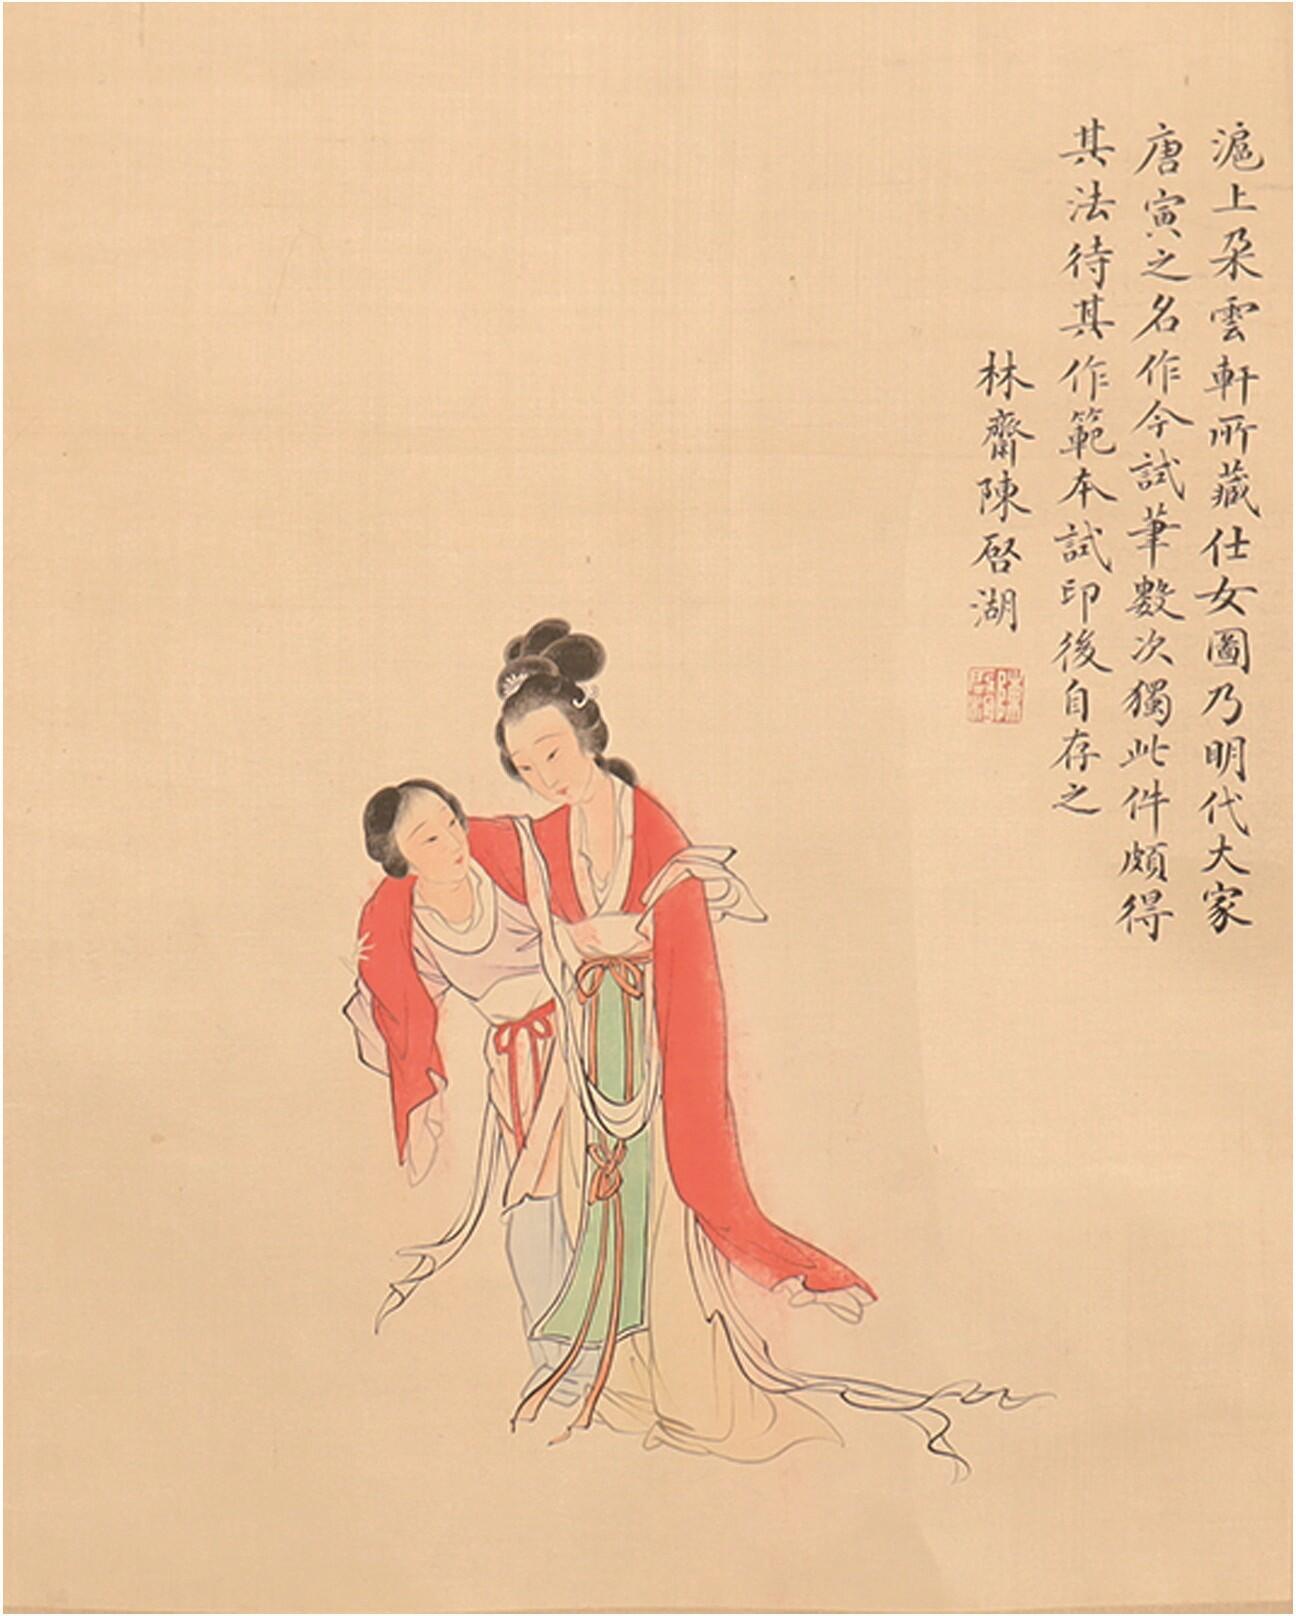 滬上朶雲軒所藏仕女圖乃明代大家
唐寅之名作今試筆數次獨此件頗得
其法待其作範本試印後自存之
林齋陳啓湖